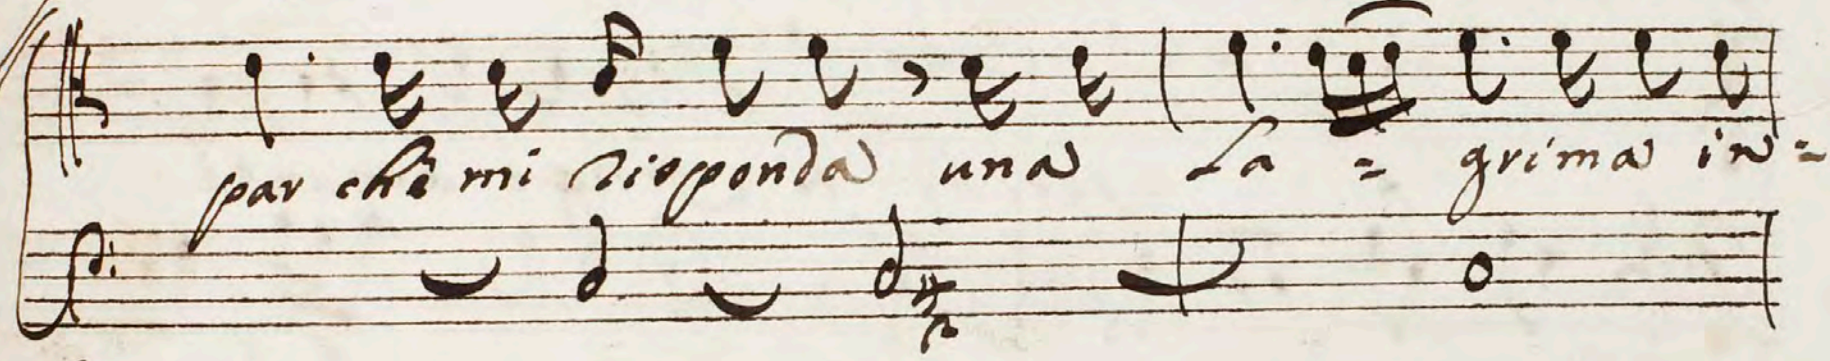 par che mi risponda una La = grima in =